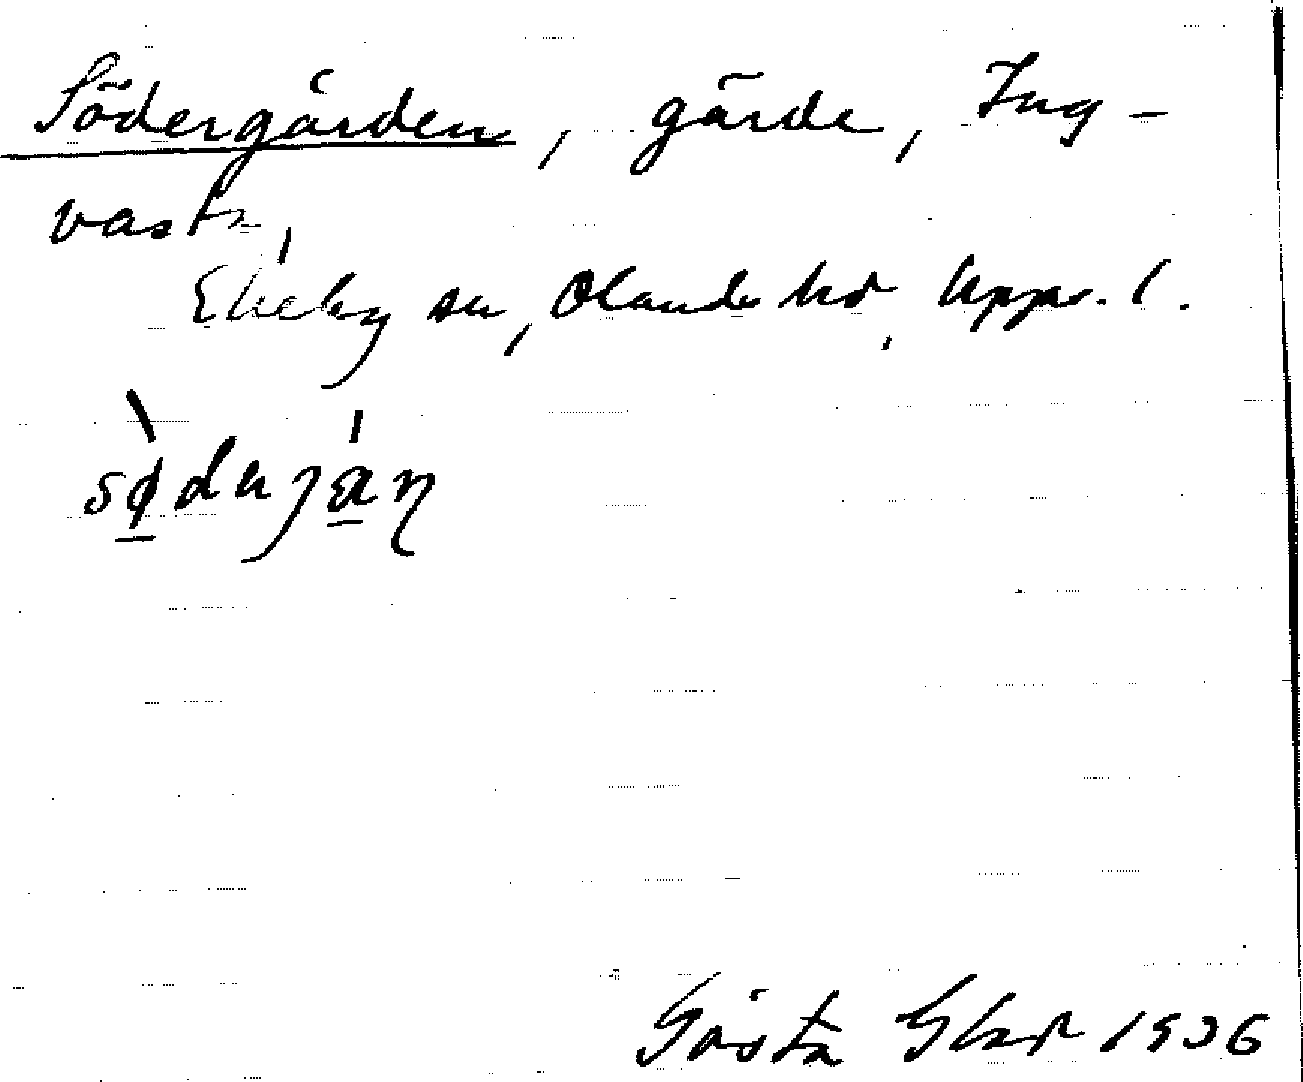 Södergården, gärde, Ing-
vasta,
Ekeby sn, Olands hd, Upps. l.
Gösta Glad 1936